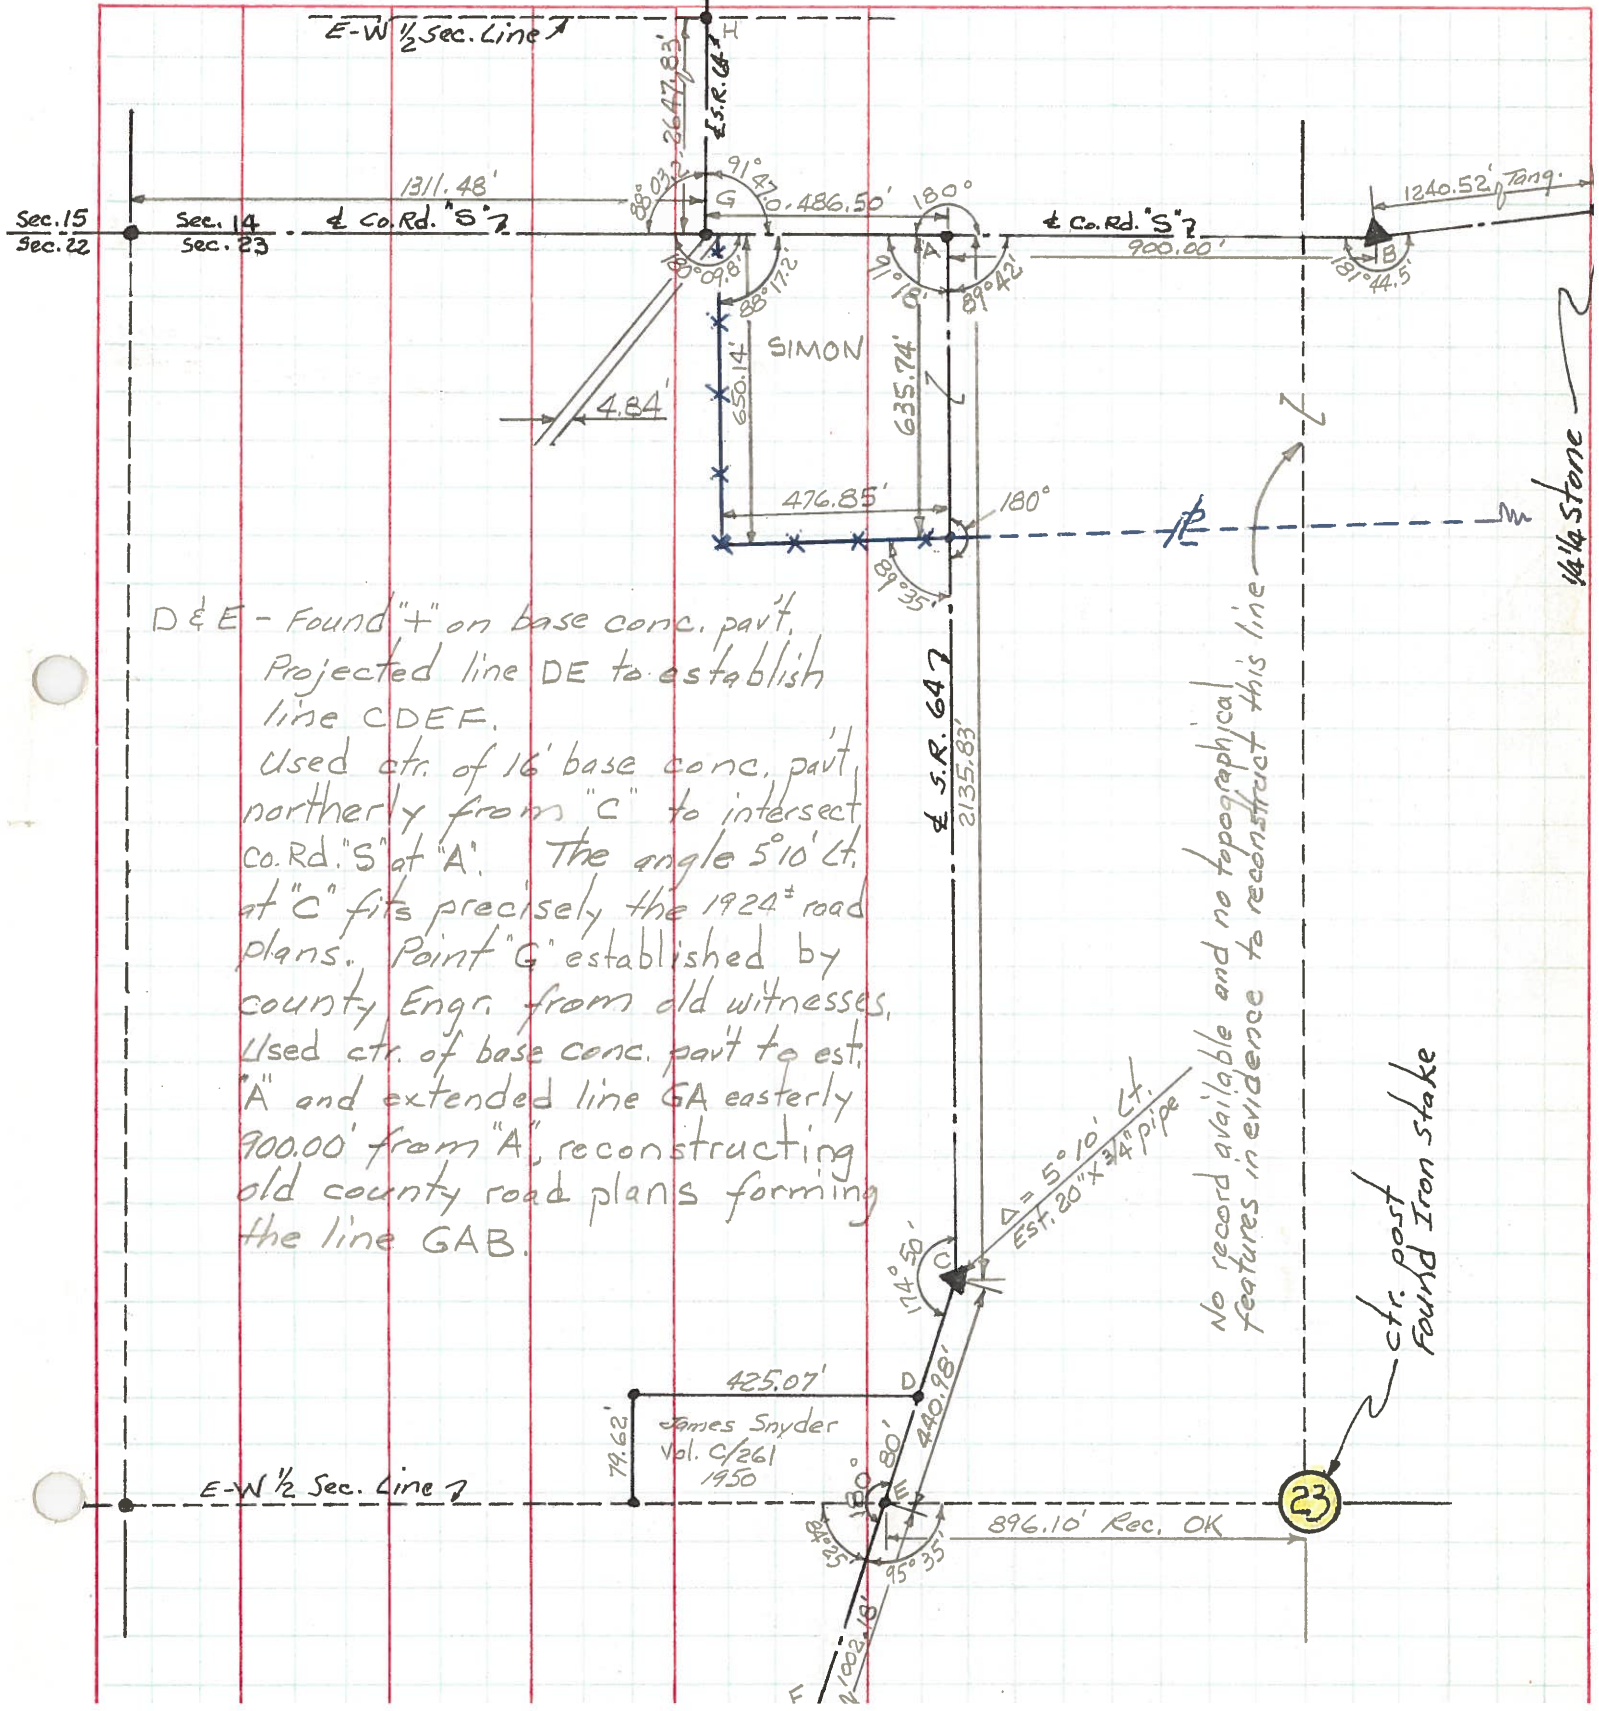 E-W 1/2 Sec. Line
H
2647.83'
℄ S.R. 64
1311.48'
88° 03.2'
91° 47'
G
486.50'
180°
1240.52' Tang.
Sec. 15
Sec. 14
℄ Co. Rd. "S"
℄ Co. Rd. "S"
Sec. 22
Sec. 23
A
900.00'
B
09.8'
88° 17.2'
91° 18'
89° 42'
181° 44.5'
SIMON
650.14'
635.74'
4.84'
476.85'
180°
89° 35'
1/4 1/4 Stone
D & E - Found "+" on base conc. pav't.
Projected line DE to establish
line CDEF.
Used ctr. of 16' base conc. pav't,
northerly from "C" to intersect
Co. Rd. "S" at "A". The angle 5° 10' Lt.
at "C" fits precisely the 1924± road
plans. Point "G" established by
county Engr. from old witnesses.
Used ctr. of base conc. pav't to est.
"A" and extended line GA easterly
900.00' from "A", reconstructing
old county road plans forming
the line GAB.
℄ S.R. 64
2135.83'
No record available and no topographical
features in evidence to reconstruct this line
Δ = 5° 10' Lt.
Est. 20" X 3/4" pipe
174° 50'
C
ctr. post
Found Iron Stake
425.07'
D
440.98'
79.62'
James Snyder
Vol. C/261
1950
80'
180°
E-W 1/2 Sec. Line
E
23
84° 25'
95° 35'
896.10' Rec. OK
1002.18'
F